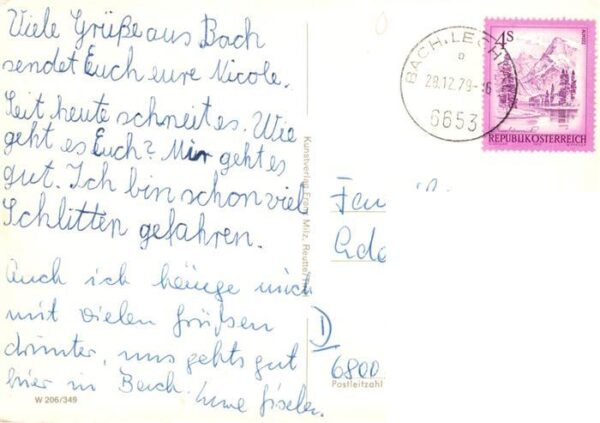 Viele Grüße aus Bach
sendet Euch eure Nicole.
Seit heute schneit es. Wie
geht es Euch? Mir geht es
gut. Ich bin schon viel
Schlitten gefahren.
Auch ich hänge mich
mit vielen Grüßen
drunter, uns gehts gut
hier in Bach. Eure Gisela.
W 206/349
Kunstverlag Franz Milz, Reutte/
BACH, LECHTAL
28.12.79
6653
4S
REPUBLIK ÖSTERREICH
Fam
D
6800
Postleitzahl